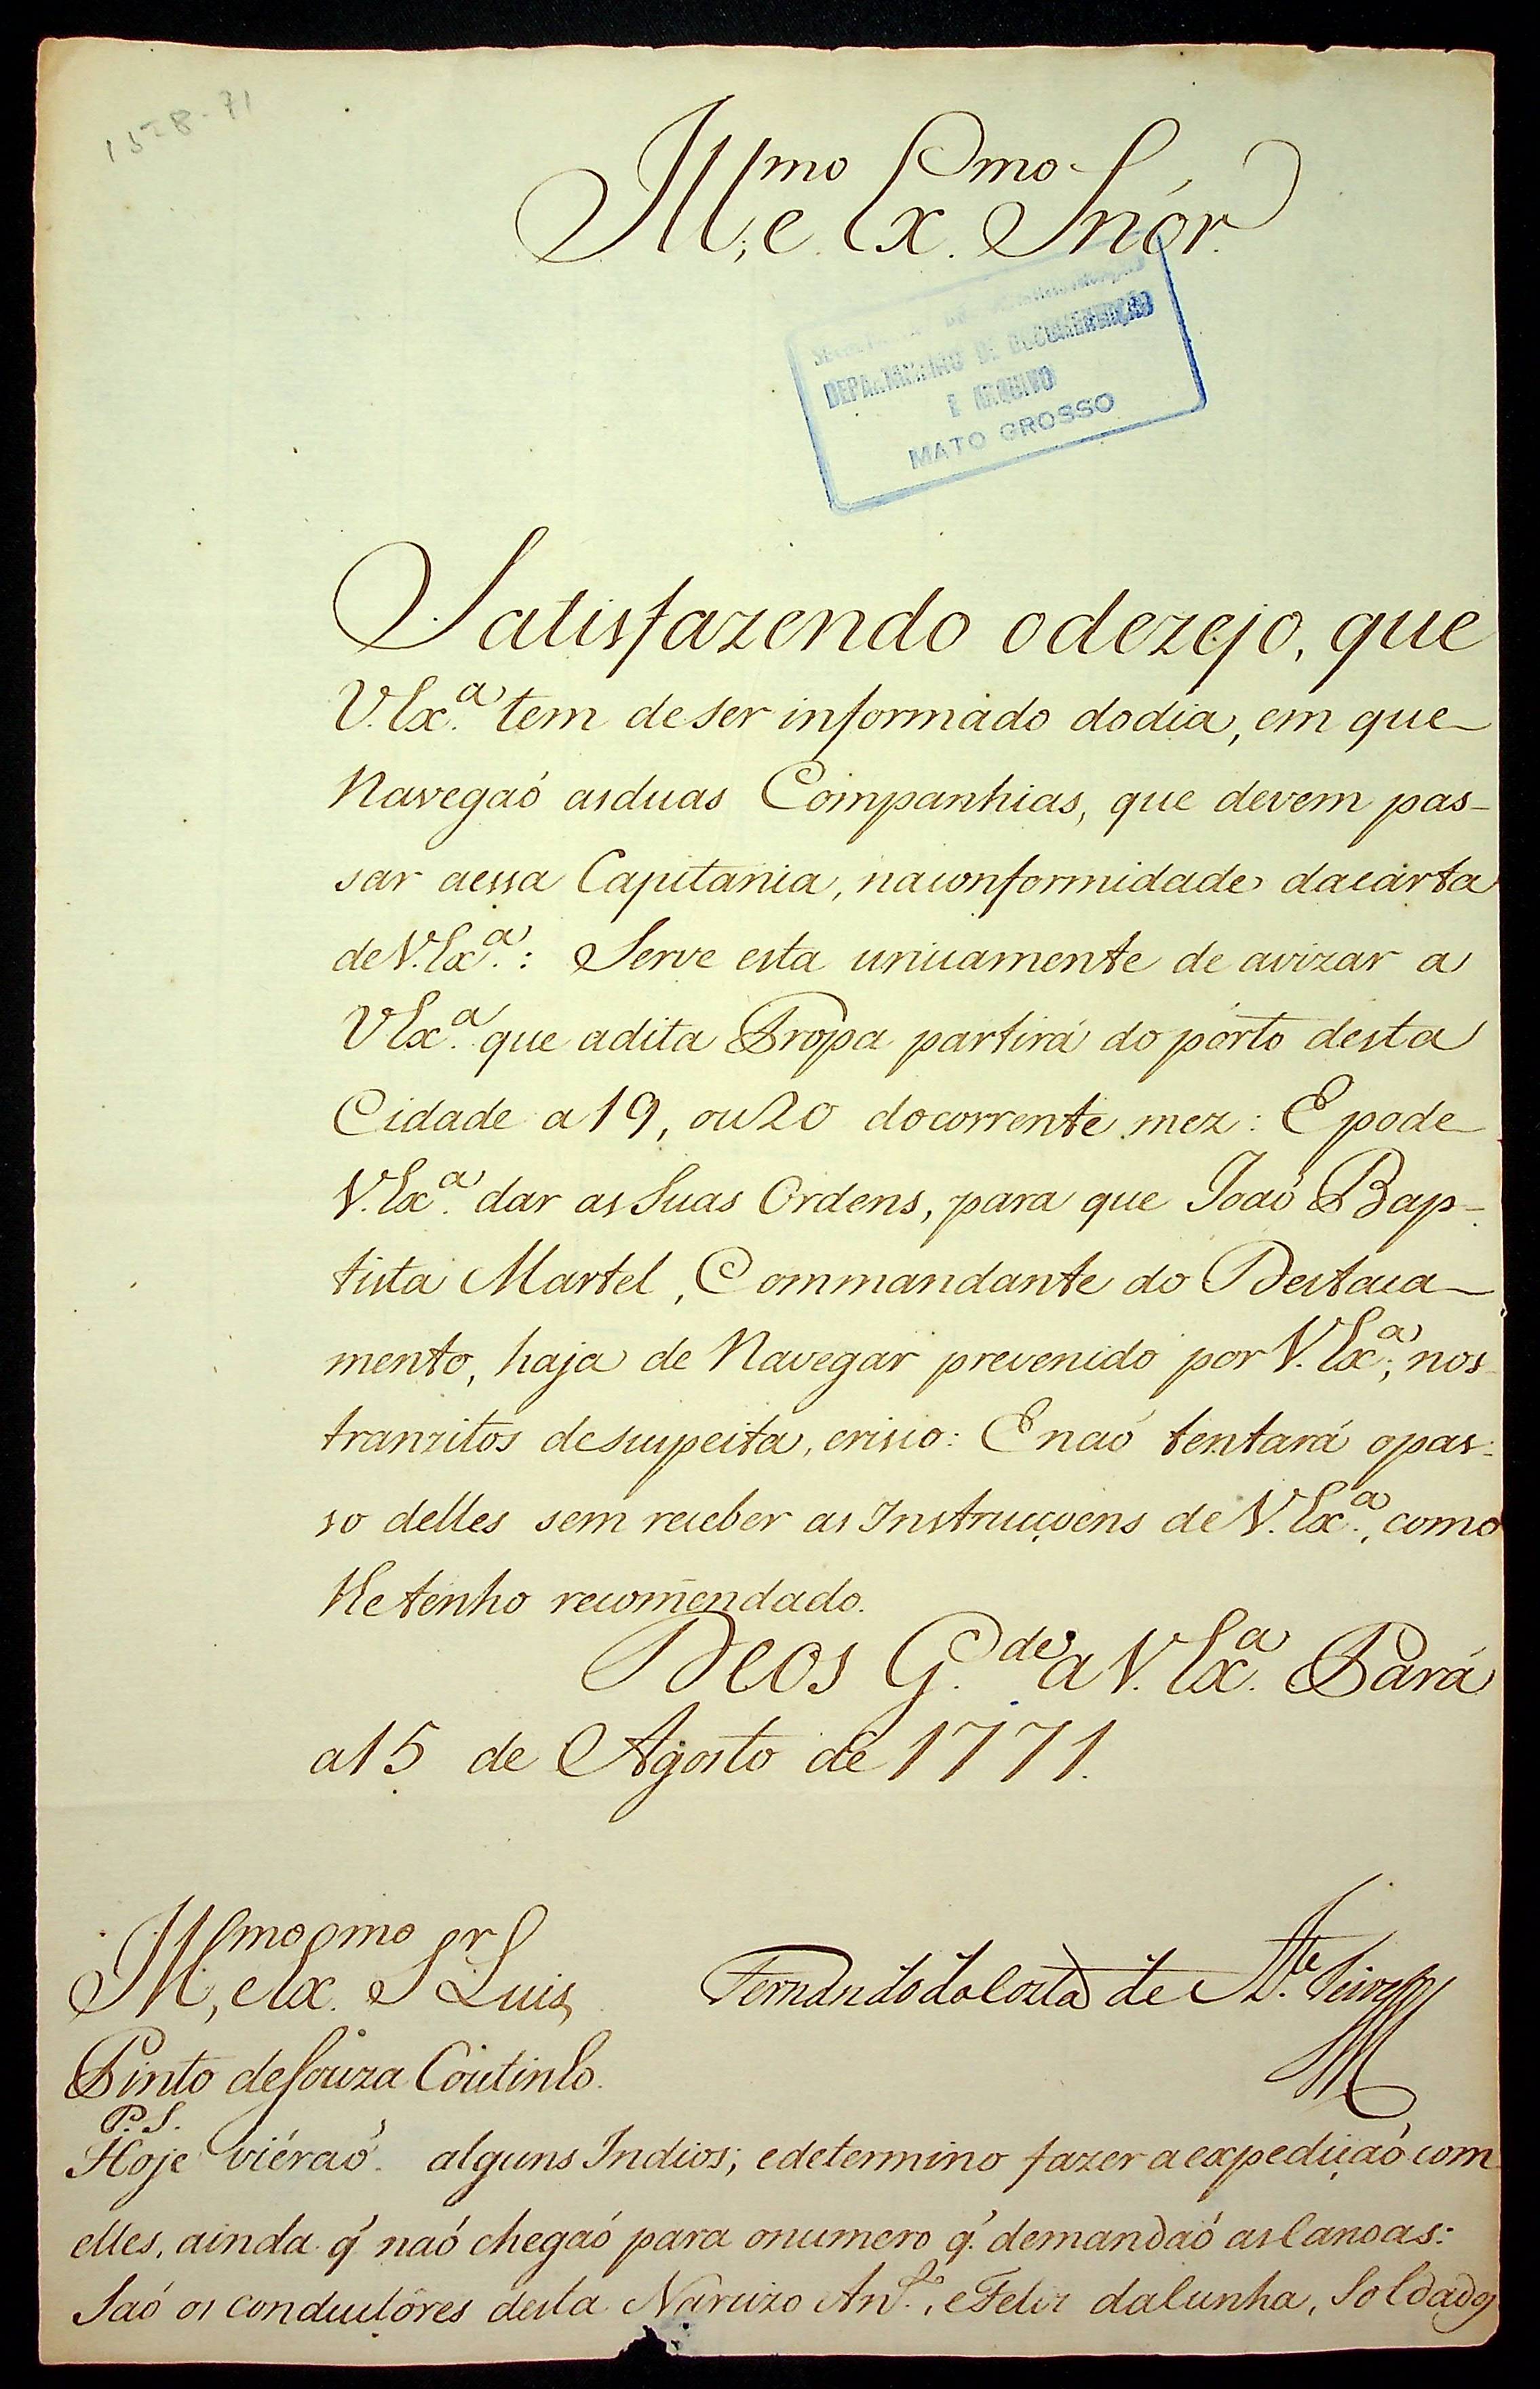 1528-71
Ill.mo, e Ex.mo Snór.
DEPARTAMENTO DE DOCUMENTAÇÃO
E ARQUIVO
MATO GROSSO
Satisfazendo odezejo, que
V. Ex.a tem deser informado dodia, em que
Navegaó asduas Companhias, que devem pas-
sar aessa Capitania, naconformidade dacarta
deV. Ex.a: Serve esta unicamente de avizar a
V Ex.a que adita Tropa partirá do pórto desta
Cidade a 19, ou 20 docorrente mez: E pode
V. Ex.a dar as Suas Ordens, para que Joaó Bap-
tista Martel, Commandante do Destaca-
mento, haja de Navegar prevenido por V. Ex.a, nos
tranzitos desuspeita, erisco: Enaó tentará opas-
so delles sem receber as Instrucçoens de V. Ex.a, como
lhe tenho recomẽndado.
Deos G.de a V. Ex.a Pará
a 15 de Agosto de 1771.
Ill.mo, e Ex.mo S.r Luis
Pinto deSouza Coutinho.
Fernando da Costa de At.e Teive
P. S.
Hoje viéraó alguns Indios; edetermino fazer aexpediçaó com
elles, ainda q' naó chegaó para onumero q' demandaó asCanoas:
Saó os conductôres desta Narcizo An.to, eFelix daCunha, Soldados